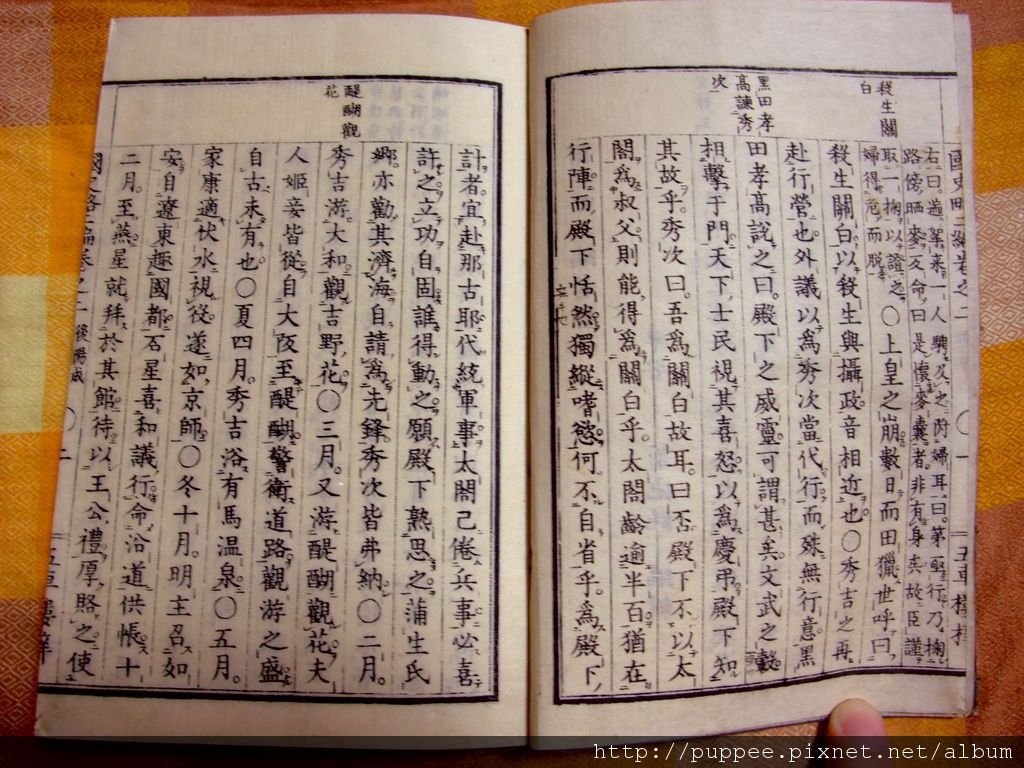 國史略二編卷之二
一
五車樓梓
殺生關白
黑田孝高諫秀次
右曰。一人騁及之。附婦耳曰。第堅行。乃掬
路傍晒麥反命。曰是懷麥囊者。非有身矣。故臣謹
取一掬以證之。
婦得免而脫。
〇上皇之崩數日而田獵。世呼曰
殺生關白。以殺生與攝政音相近也。〇秀吉之再
赴行營也。外議以爲秀次當代行。而殊無行意。黑
田孝高說之曰。殿下之威靈可謂甚矣。文武之轂
相擊于門。天下士民視其喜怒以爲慶弔。殿下知
其故乎。秀次曰。吾爲關白故耳。曰否。殿下不以太
閤爲叔父。則能得爲關白乎。太閤齡逾半百。猶在
行陣。而殿下恬然獨縱嗜慾。何不自省乎。爲殿下
醍醐觀花
計者。宜赴那古耶代統軍事。太閤已倦兵事。必喜
許之。立功自固。誰得動之。願殿下熟思之。蒲生氏
鄉亦勸其濟海。自請爲先鋒。秀次皆弗納。〇二月。
秀吉游大和。觀吉野花。〇三月。又游醍醐觀花。夫
人姬妾皆從。自大阪至醍醐。警衛道路。觀游之盛
自古未有也。〇夏四月。秀吉浴有馬溫泉。〇五月。
家康適伏水視役。遂如京師。〇冬十月。明主召如
安。自遼東趣國都。石星喜和議行。命沿道供帳。十
二月。至燕。星就拜於其館。待以王公。禮厚賂之。使
國史略二編卷之二
後陽成
二
五車樓梓
http://puppee.pixnet.net/album